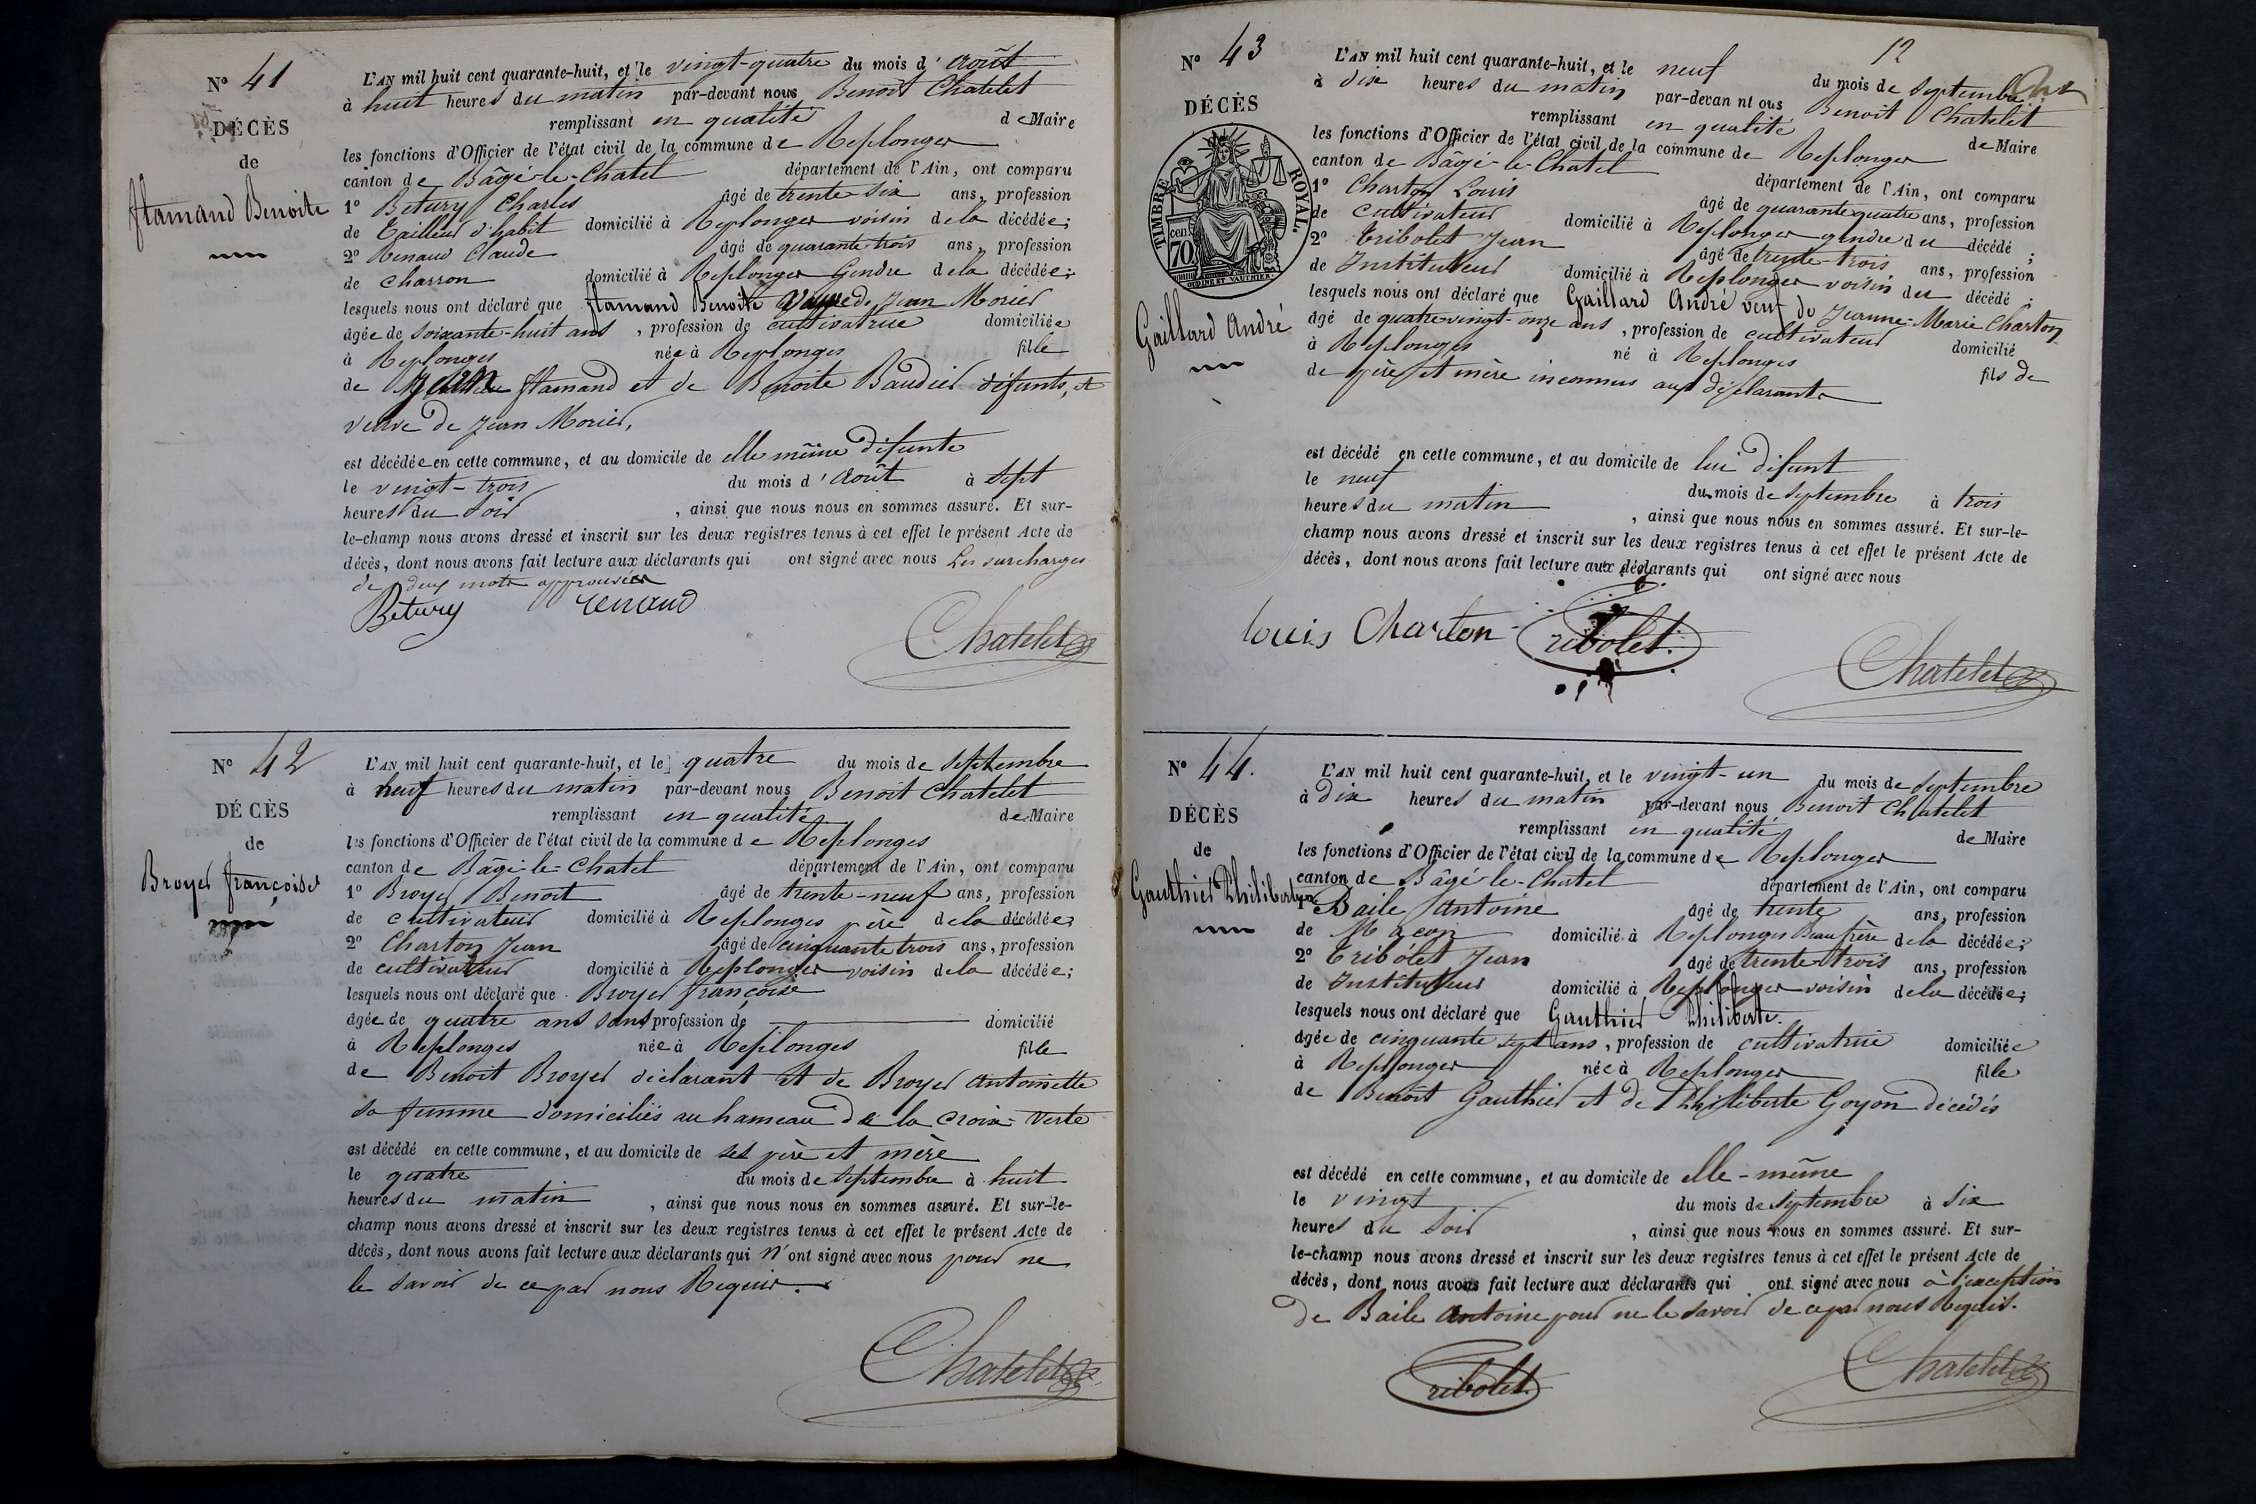 N° 41
DÉCÈS
de
flamand Benoite
L'AN mil huit cent quarante-huit, et le vingt-quatre du mois d'Août
à huit heures du matin par-devant nous Benoit Chatelet
remplissant en qualité de Maire
les fonctions d'Officier de l'état civil de la commune de Replonges
canton de Bâgé-le-Chatel département de l'Ain, ont comparu
1° Betury Charles âgé de trente six ans, profession
de Tailleur d'habit domicilié à Replonges voisin de la décédée;
2° Renaud Claude âgé de quarante trois ans, profession
de charron domicilié à Replonges Gendre de la décédée;
lesquels nous ont déclaré que flamand Benoite Veuve de Jean Morier
âgée de soixante-huit ans, profession de cultivatrice domiciliée
à Replonges née à Replonges fille
de Jean flamand et de Benoite Baudier défunts, et
veuve de Jean Morier,
est décédée en cette commune, et au domicile de elle même défunte
le vingt-trois du mois d'Août à sept
heures du soir, ainsi que nous nous en sommes assuré. Et sur-
le-champ nous avons dressé et inscrit sur les deux registres tenus à cet effet le présent Acte de
décès, dont nous avons fait lecture aux déclarants qui ont signé avec nous Les surcharges
de deux mots approuvées
Betury renaud
Chatelet
N° 42
DÉCÈS
de
Broyer françoise
L'AN mil huit cent quarante-huit, et le quatre du mois de septembre
à neuf heures du matin par-devant nous Benoit Chatelet
remplissant en qualité de Maire
les fonctions d'Officier de l'état civil de la commune de Replonges
canton de Bâgé-le-Chatel département de l'Ain, ont comparu
1° Broyer Benoit âgé de trente-neuf ans, profession
de cultivateur domicilié à Replonges père de la décédée;
2° Charton Jean âgé de cinquante trois ans, profession
de cultivateur domicilié à Replonges voisin de la décédée;
lesquels nous ont déclaré que Broyer françoise
âgée de quatre ans sans profession de domicilié
à Replonges née à Replonges fille
de Benoit Broyer déclarant et de Broyer Antoinette
sa femme domiciliés au hameau de la croix-verte
est décédé en cette commune, et au domicile de ses père et mère
le quatre du mois de septembre à huit
heures du matin, ainsi que nous nous en sommes assuré. Et sur-le-
champ nous avons dressé et inscrit sur les deux registres tenus à cet effet le présent Acte de
décès, dont nous avons fait lecture aux déclarants qui n'ont signé avec nous pour ne
le savoir de ce par nous Requis.
Chatelet
12
N° 43
DÉCÈS
TIMBRE ROYAL
70 cen
Gaillard André
L'AN mil huit cent quarante-huit, et le neuf du mois de septembre
à dix heures du matin par-devan nt ous Benoit Chatelet
remplissant en qualité de Maire
les fonctions d'Officier de l'état civil de la commune de Replonges
canton de Bâgé-le-Chatel département de l'Ain, ont comparu
1° Charton Louis âgé de quarante quatre ans, profession
de cultivateur domicilié à Replonges gendre du décédé;
2° Tribolet Jean âgé de trente-trois ans, profession
de Instituteur domicilié à Replonges voisin du décédé;
lesquels nous ont déclaré que Gaillard André veuf de Jeanne-Marie Charton
âgé de quatre vingt-onze ans, profession de cultivateur domicilié
à Replonges né à Replonges fils de
de père et mère inconnus aux déclarants
est décédé en cette commune, et au domicile de lui défunt
le neuf du mois de septembre à trois
heures du matin, ainsi que nous nous en sommes assuré. Et sur-le-
champ nous avons dressé et inscrit sur les deux registres tenus à cet effet le présent Acte de
décès, dont nous avons fait lecture aux déclarants qui ont signé avec nous
louis Charton Tribolet
Chatelet
N° 44.
DÉCÈS
de
Gauthier Philiberte
L'AN mil huit cent quarante-huit, et le vingt-un du mois de septembre
à dix heures du matin par-devant nous Benoit Chatelet
remplissant en qualité de Maire
les fonctions d'Officier de l'état civil de la commune de Replonges
canton de Bâgé-le-Chatel département de l'Ain, ont comparu
1° Baile Antoine âgé de trente ans, profession
de Maçon domicilié à Replonges Beau frère de la décédée;
2° Tribolet Jean âgé de trente-trois ans, profession
de Instituteur domicilié à Replonges voisin de la décédée;
lesquels nous ont déclaré que Gauthier Philiberte.
âgée de cinquante sept ans, profession de cultivatrice domiciliée
à Replonges née à Replonges fille
de Benoit Gauthier et de Philiberte Goyon décédés
est décédé en cette commune, et au domicile de elle-même
le vingt du mois de septembre à six
heures du soir, ainsi que nous nous en sommes assuré. Et sur-
le-champ nous avons dressé et inscrit sur les deux registres tenus à cet effet le présent Acte de
décès, dont nous avons fait lecture aux déclarants qui ont signé avec nous à l'exception
de Baile Antoine pour ne le savoir de ce par nous Requis.
Tribolet
Chatelet